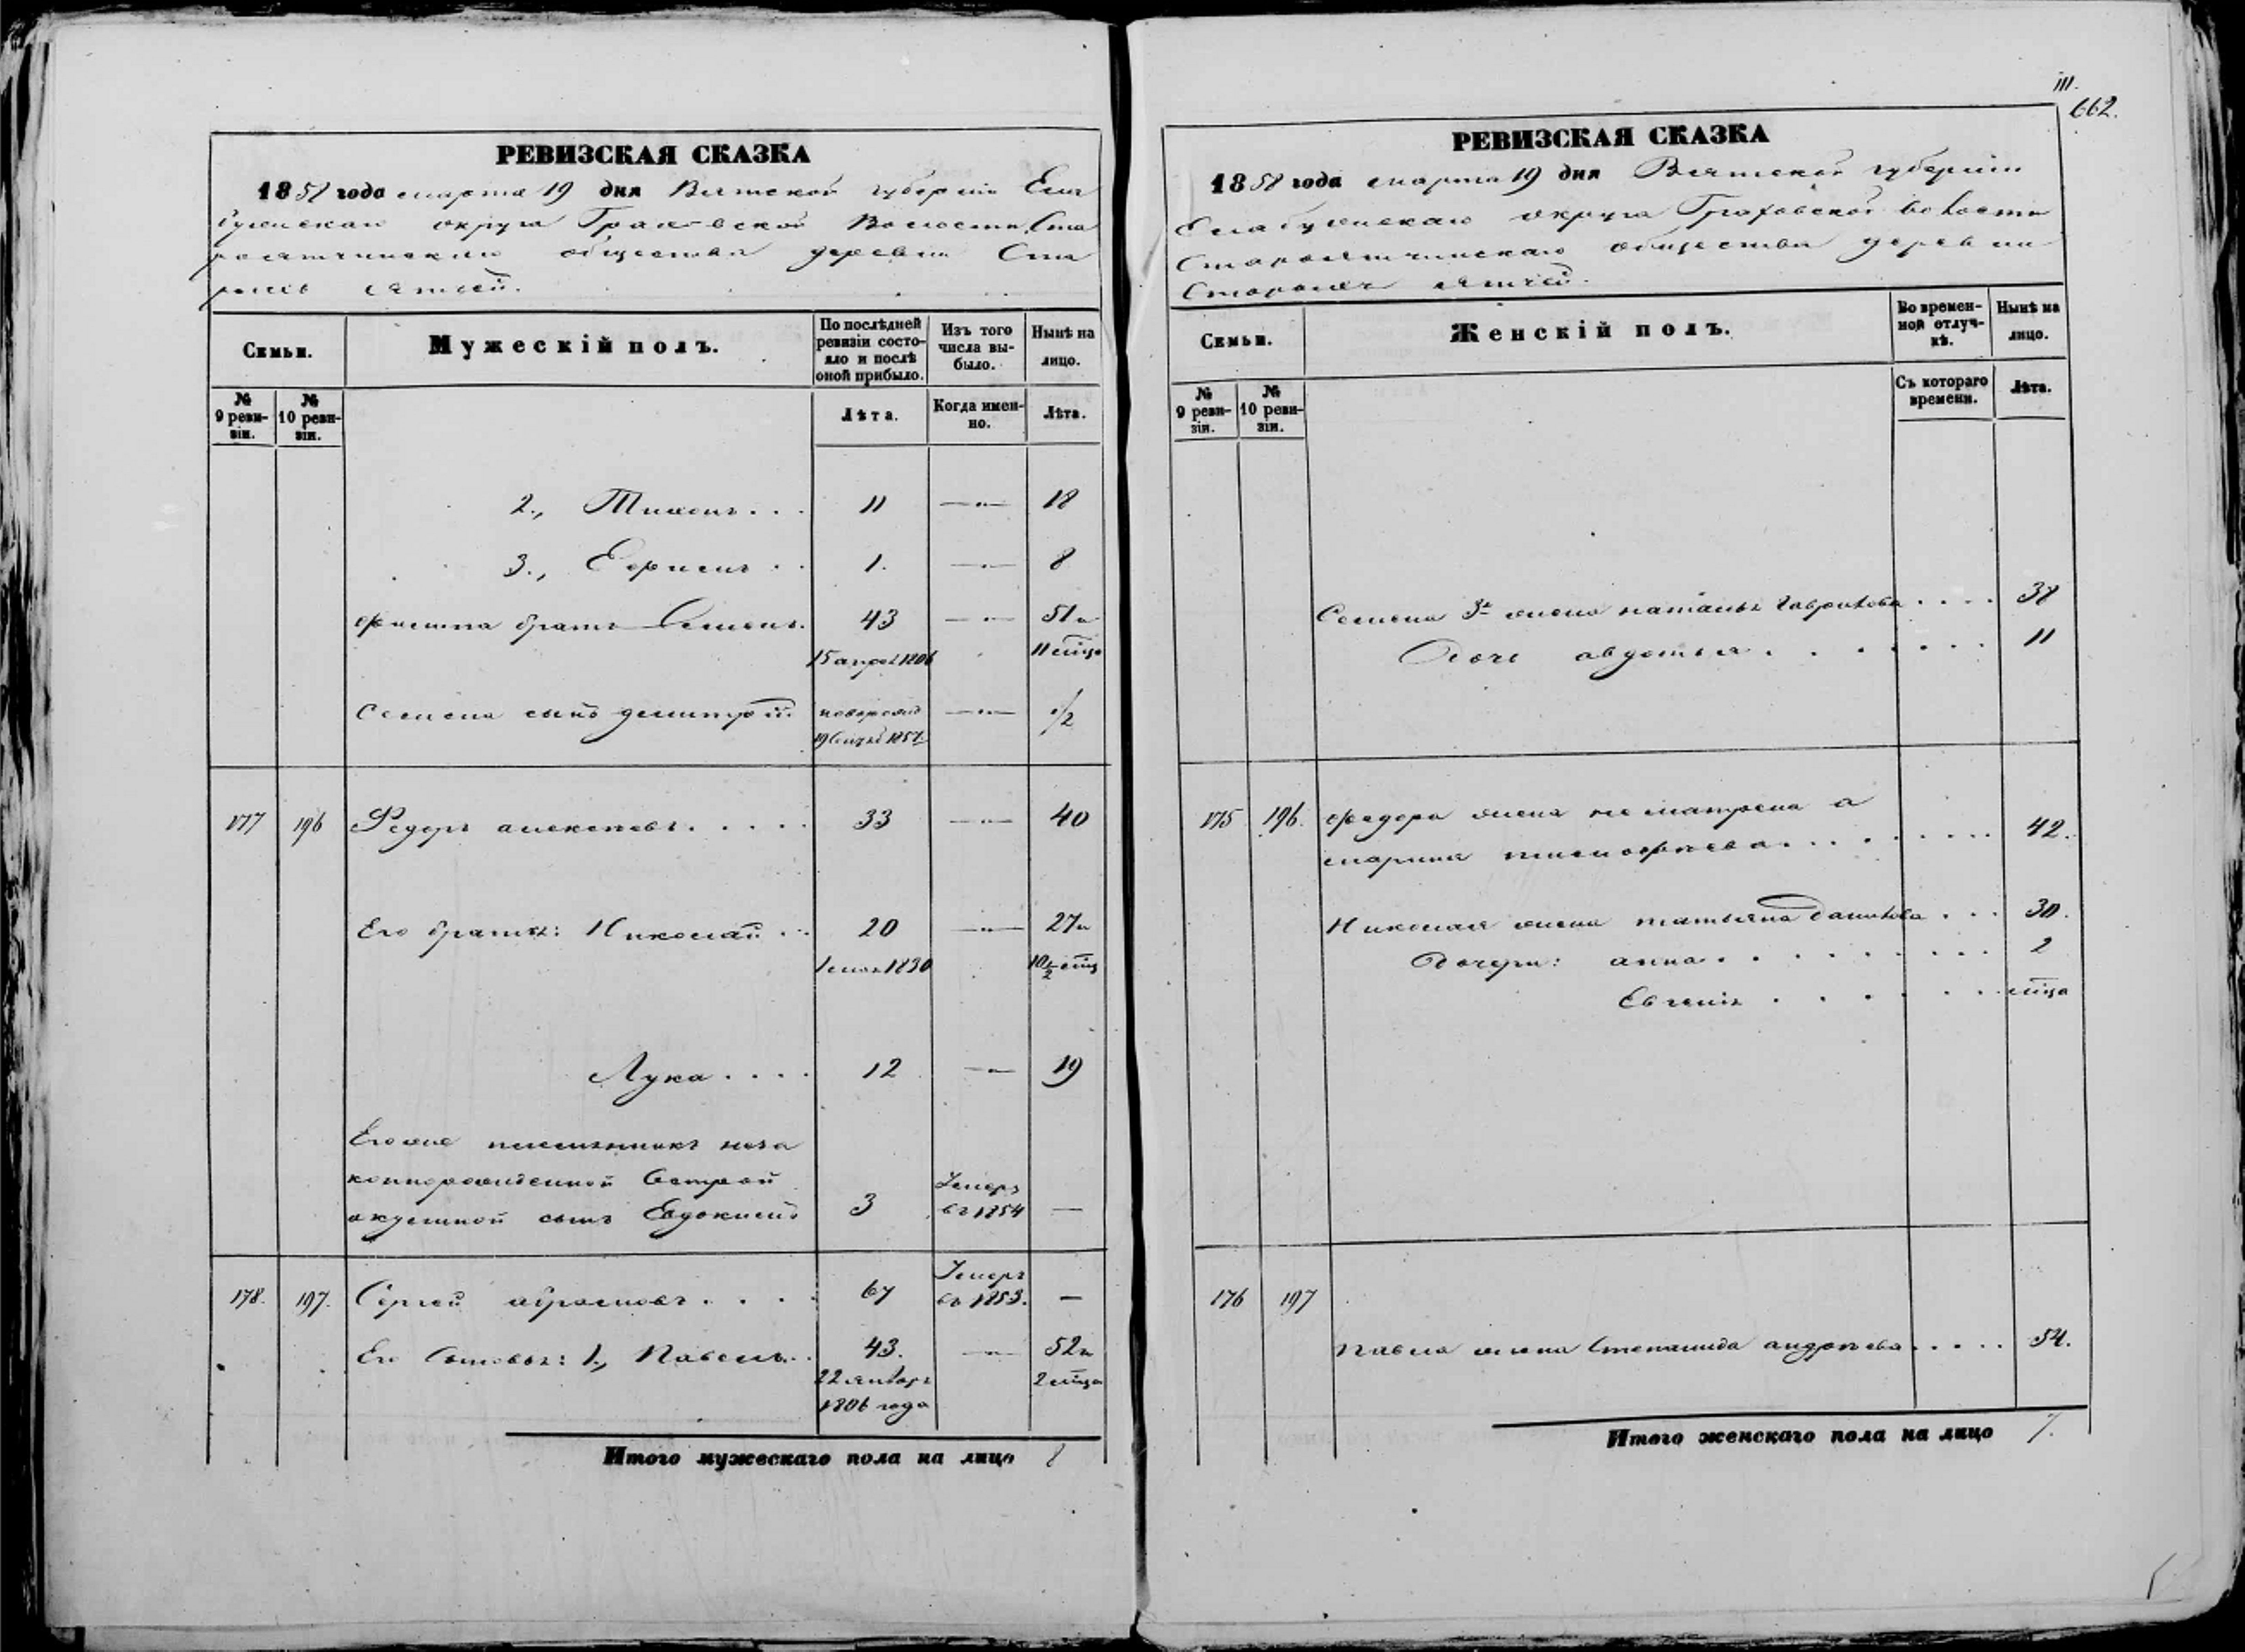 РЕВИЗСКАЯ СКАЗКА
1858 года марта 19 дня Вятской губерніи Ела
бужскаго округа Граховской Волости Ста
роятчинскаго общества деревни Ста
рыхъ Ятчей.
Семьи.
Мужескій полъ.
По послѣдней ревизіи состояло и послѣ оной прибыло.
Изъ того числа выбыло.
Нынѣ на лицо.
№ 9 ревизіи.
№ 10 ревизіи.
Лѣта.
Когда именно.
Лѣта.
2., Тихонъ . . . 11 —„— 18
3., . . 1. —„— 8
братъ Семенъ. 43 —„— 51 и
15 апрел 1806 11 мѣца
Семена сынъ Димитрей. новорожд —„— 1/2
177 196 Федоръ Алексѣевъ . . . . . 33 —„— 40
Его братья: Николай . . 20 —„— 27 и
1830 10 1/2 мѣц
Лука . . . . 12 —„— 19
Его же племянникъ неза
коннорожденной Сестрой
Акулиной сынъ Евдокимъ 3 Умеръ въ 1854 —
178. 197. Сергей Абрамовъ . . . . 67 Умеръ въ 1853. —
Его Сыновья: 1., Павелъ . . 43. —„— 52 и
22 январ 2 мѣца
1806 года
Итого мужескаго пола на лицо 8
III.
662.
РЕВИЗСКАЯ СКАЗКА
1858 года марта 19 дня Вятской губерніи
Елабужскаго округа Граховской волости
Староятчинскаго общества деревни
Старыхъ Ятчей.
Семьи.
Женскій полъ.
Во временной отлучкѣ.
Нынѣ на лицо.
№ 9 ревизіи.
№ 10 ревизіи.
Съ котораго времени.
Лѣта.
Семена 3я жена Наталья Гаврилова . . . . 38
Дочь Авдотья . . . . . . . 11
175 196. Федора жена не Матрена а
Марина Тимофѣева . . . . . . . . 42.
Николая жена Татьяна Данилова . . . 30.
Дочери: Анна . . . . . . . . . 2
Евгенія . . . . . . мѣца
176 197
Павла жена Степанида Андрѣева . . . . . 54.
Итого женскаго пола на лицо 7.